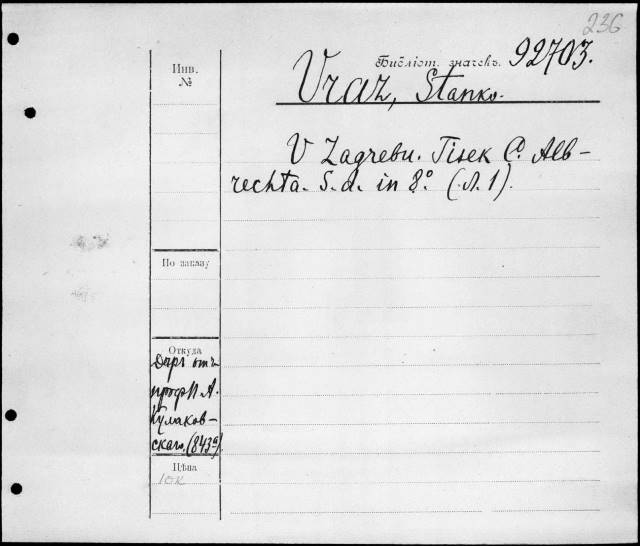 236
Инв.
№
Библіот. значекъ. 92703.
Vraz, Stanko.
V Zagrebu. Tisek C. Alb-
rechta. S. d. in 8º (.Л. 1).
По заказу
Откуда
Даръ отъ
проф. П. А.
Кулаков-
скаго. (843а)
Цѣна
10к